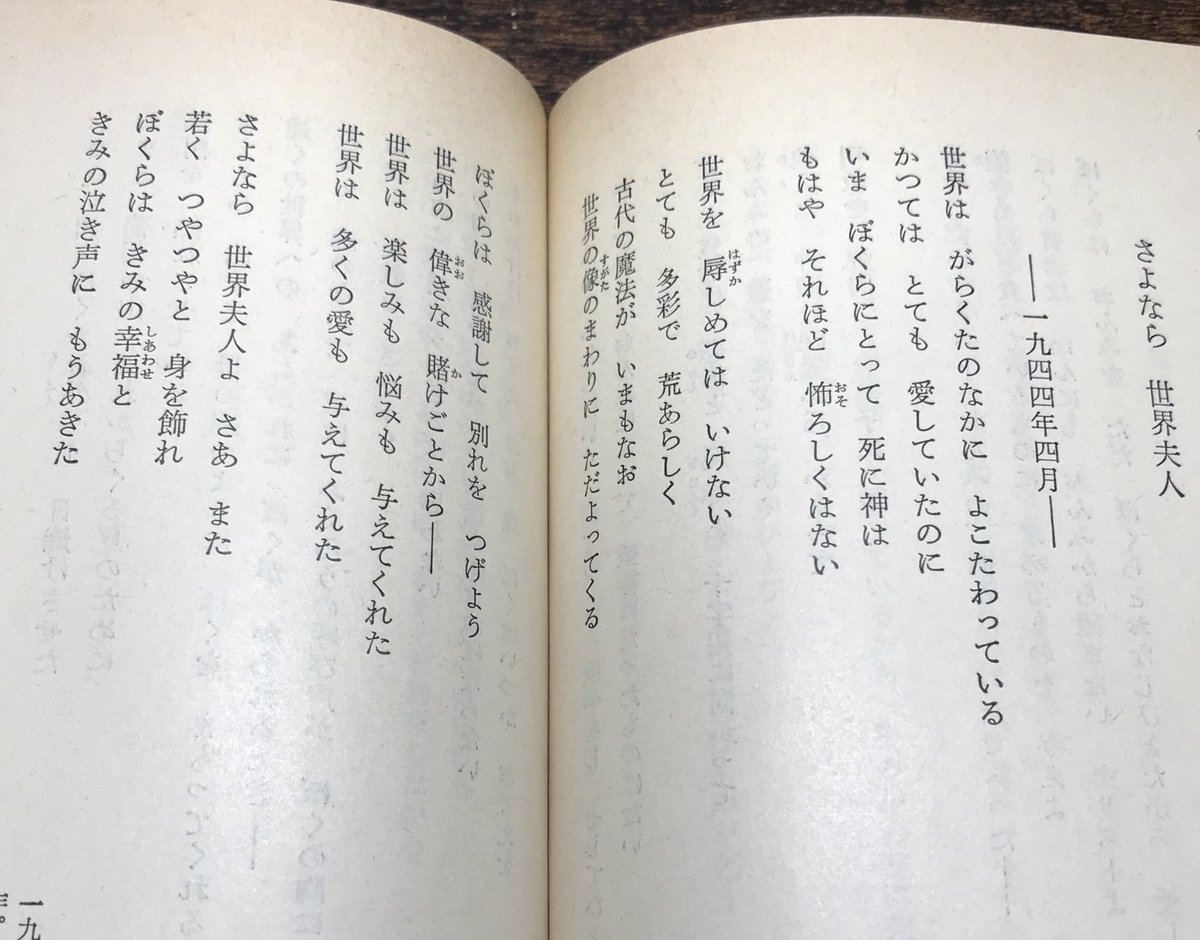 さよなら 世界夫人
――一九四四年四月――
世界は がらくたのなかに よこたわっている
かつては とても 愛していたのに
いま ぼくらにとって 死に神は
もはや それほど 怖ろしくはない
世界を 辱しめては いけない
とても 多彩で 荒あらしく
古代の魔法が いまもなお
世界の像のまわりに ただよってくる
ぼくらは 感謝して 別れを つげよう
世界の 偉きな 賭けごとから――
世界は 楽しみも 悩みも 与えてくれた
世界は 多くの愛も 与えてくれた
さよなら 世界夫人よ さあ また
若く つやつやと 身を飾れ
ぼくらは きみの幸福と
きみの泣き声に もうあきた
一九